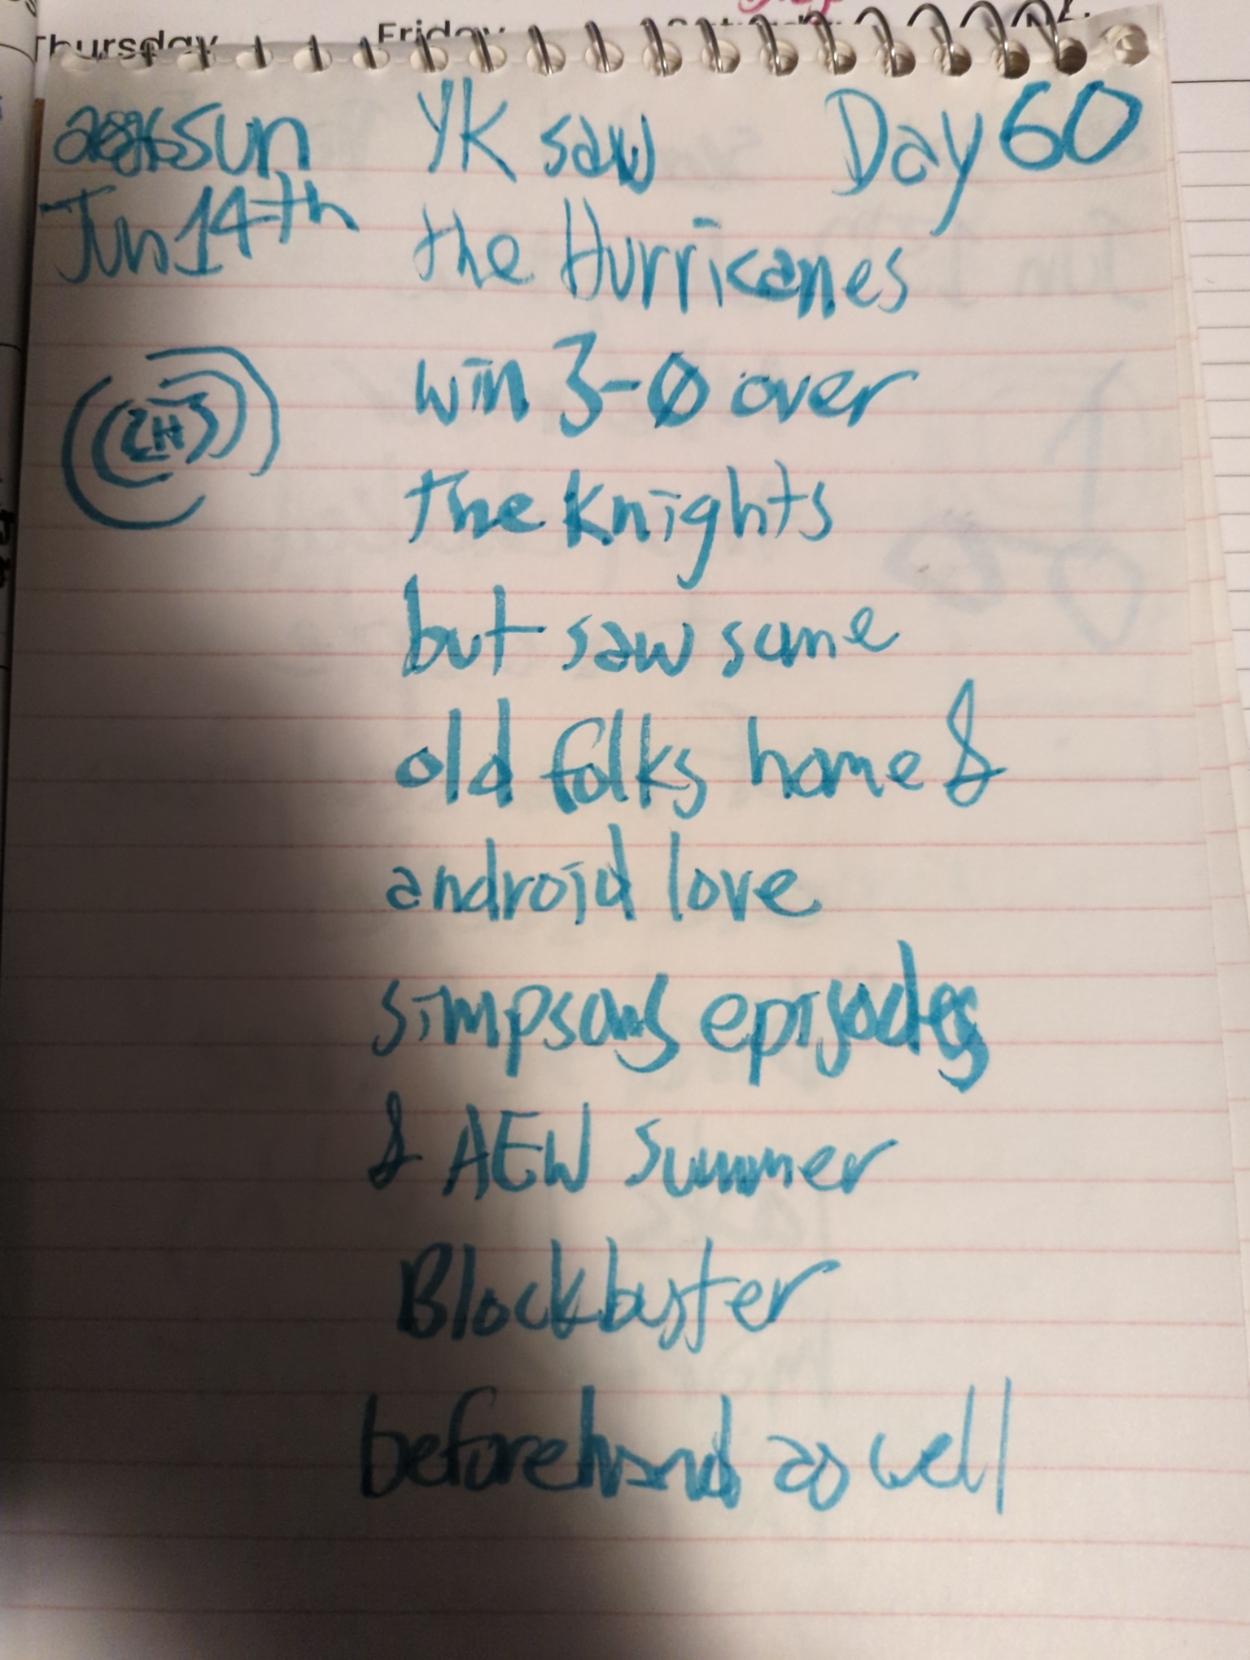 Thursday Friday Saturday
2026 Sun YK saw Day 60
Jun 14th the Hurricanes
win 3-0 over
the Knights
but saw some
old folks home &
android love
simpsons episodes
& AEW Summer
Blockbuster
beforehand as well